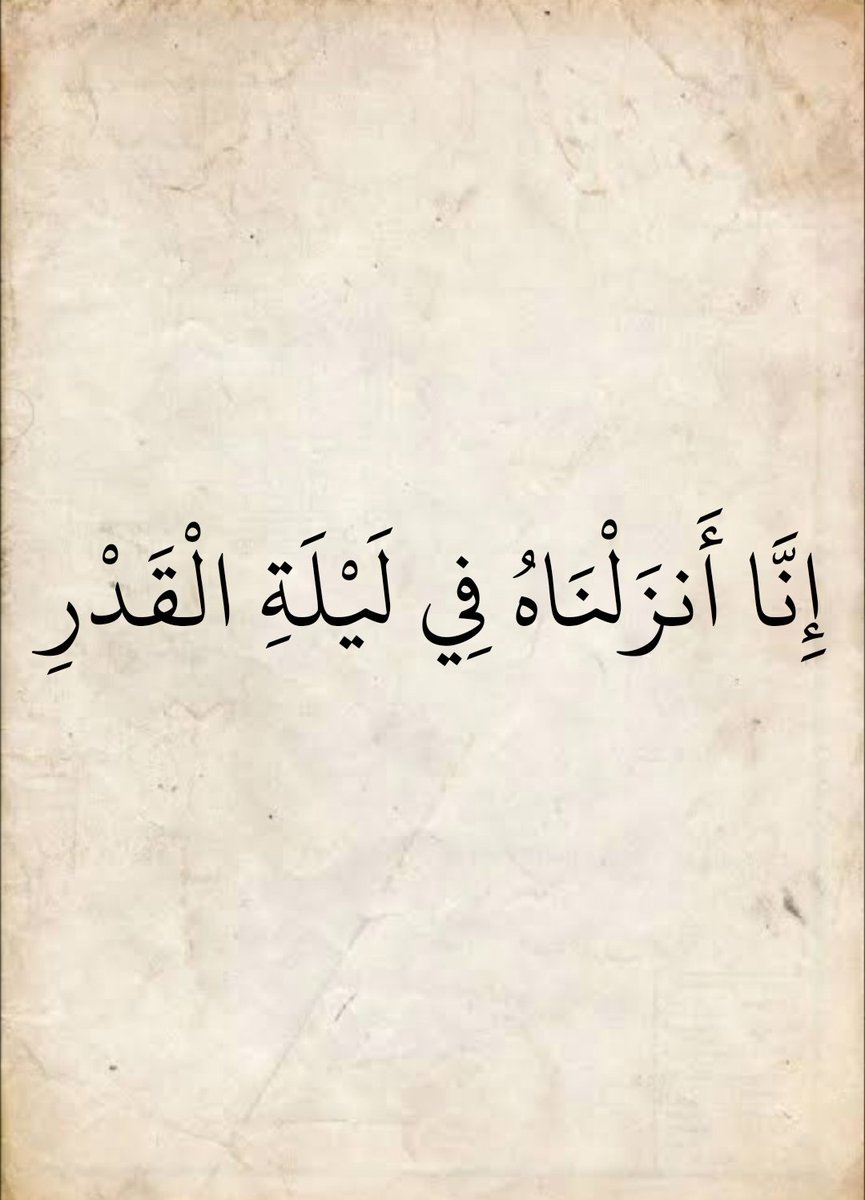 إِنَّا أَنزَلْنَاهُ فِي لَيْلَةِ الْقَدْرِ